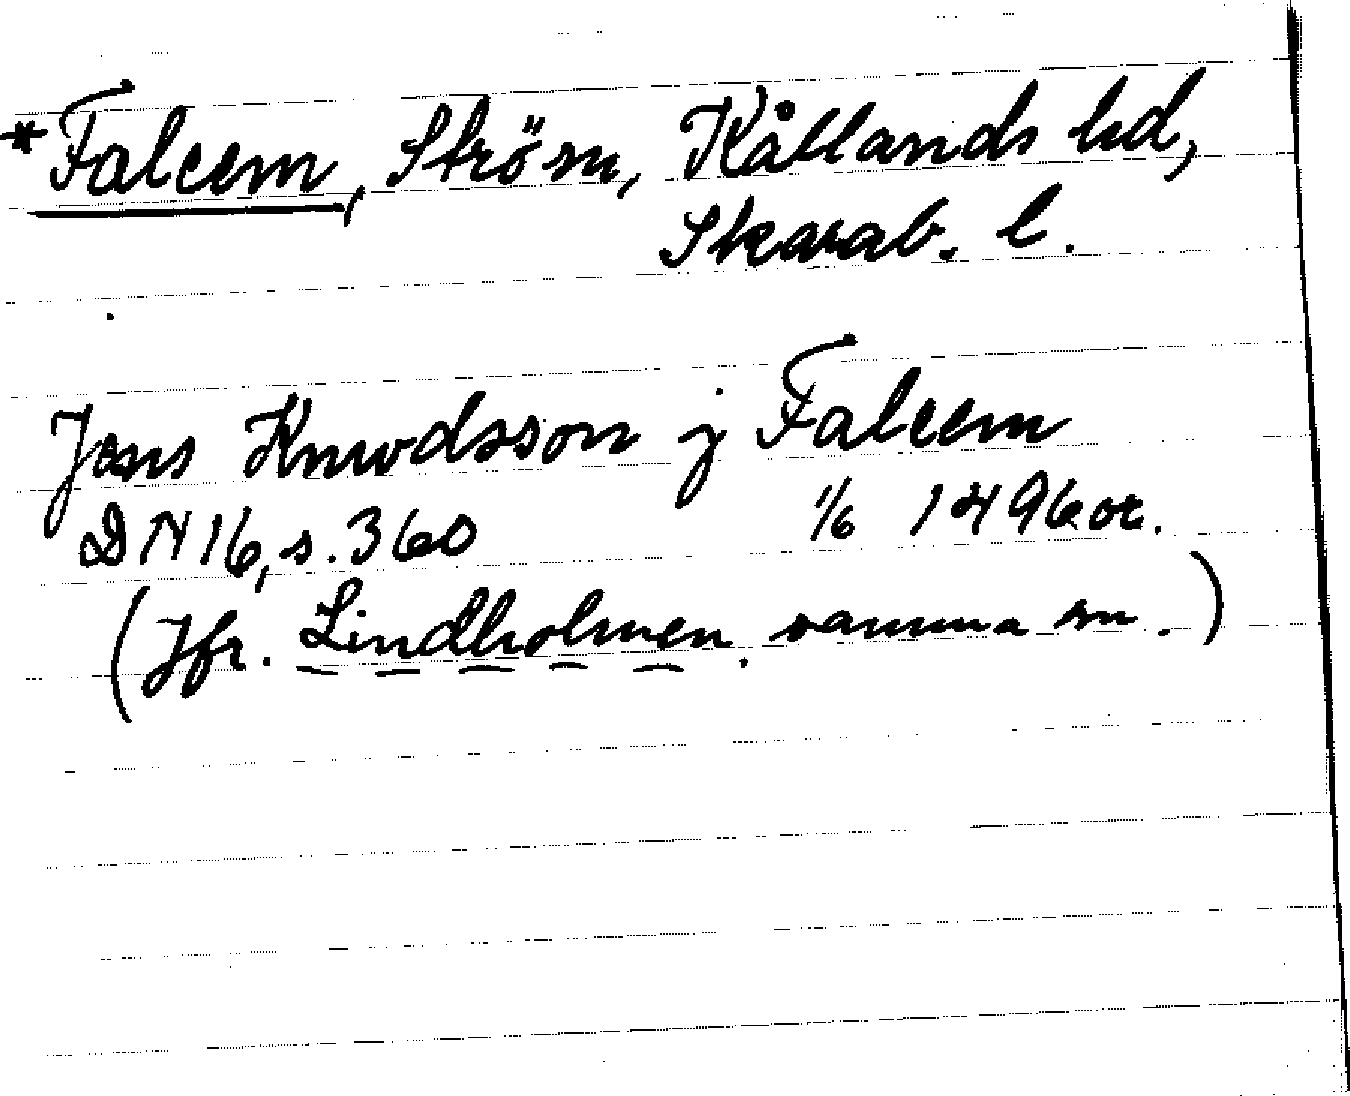 *Faleem, Ström, Kållands hd,
Skarab. l.
Jens Knwdsson j Faleem
DN 16, s. 360 1/6 1496 or.
(Jfr. Lindholmen. samma sn.)